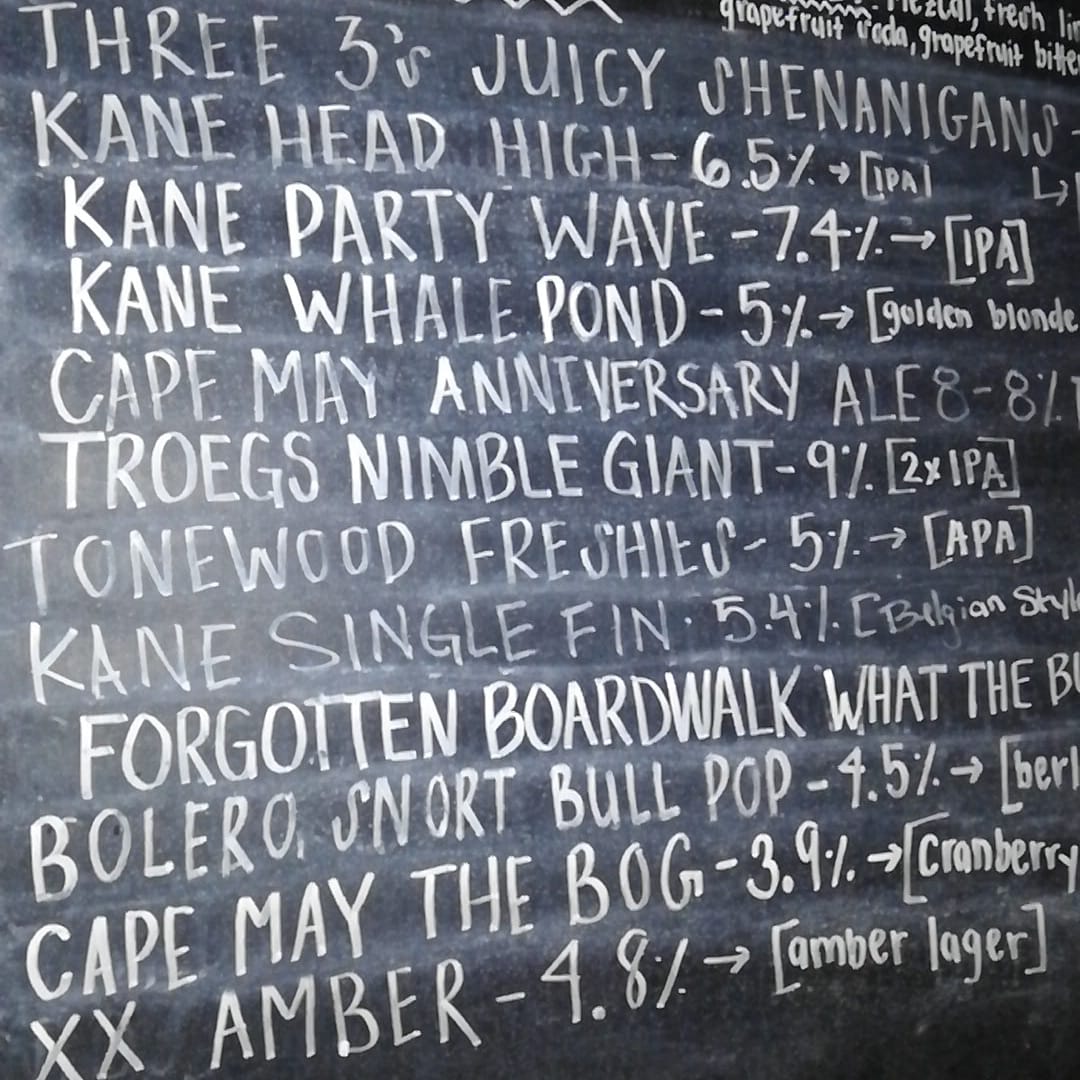 Mezcal, fresh
grapefruit soda, grapefruit
THREE 3's JUICY SHENANIGANS -
KANE HEAD HIGH - 6.5% → [IPA]
KANE PARTY WAVE - 7.4% → [IPA]
KANE WHALE POND - 5% → [golden blonde
CAPE MAY ANNIVERSARY ALE 8 - 8%
TROEGS NIMBLE GIANT - 9% [2x IPA]
TONEWOOD FRESHIES - 5% → [APA]
KANE SINGLE FIN · 5.4% [Belgian Style
FORGOTTEN BOARDWALK WHAT THE
BOLERO SNORT BULL POP - 4.5% → [
CAPE MAY THE BOG - 3.9% → [Cranberry
XX AMBER - 4.8% → [amber lager]